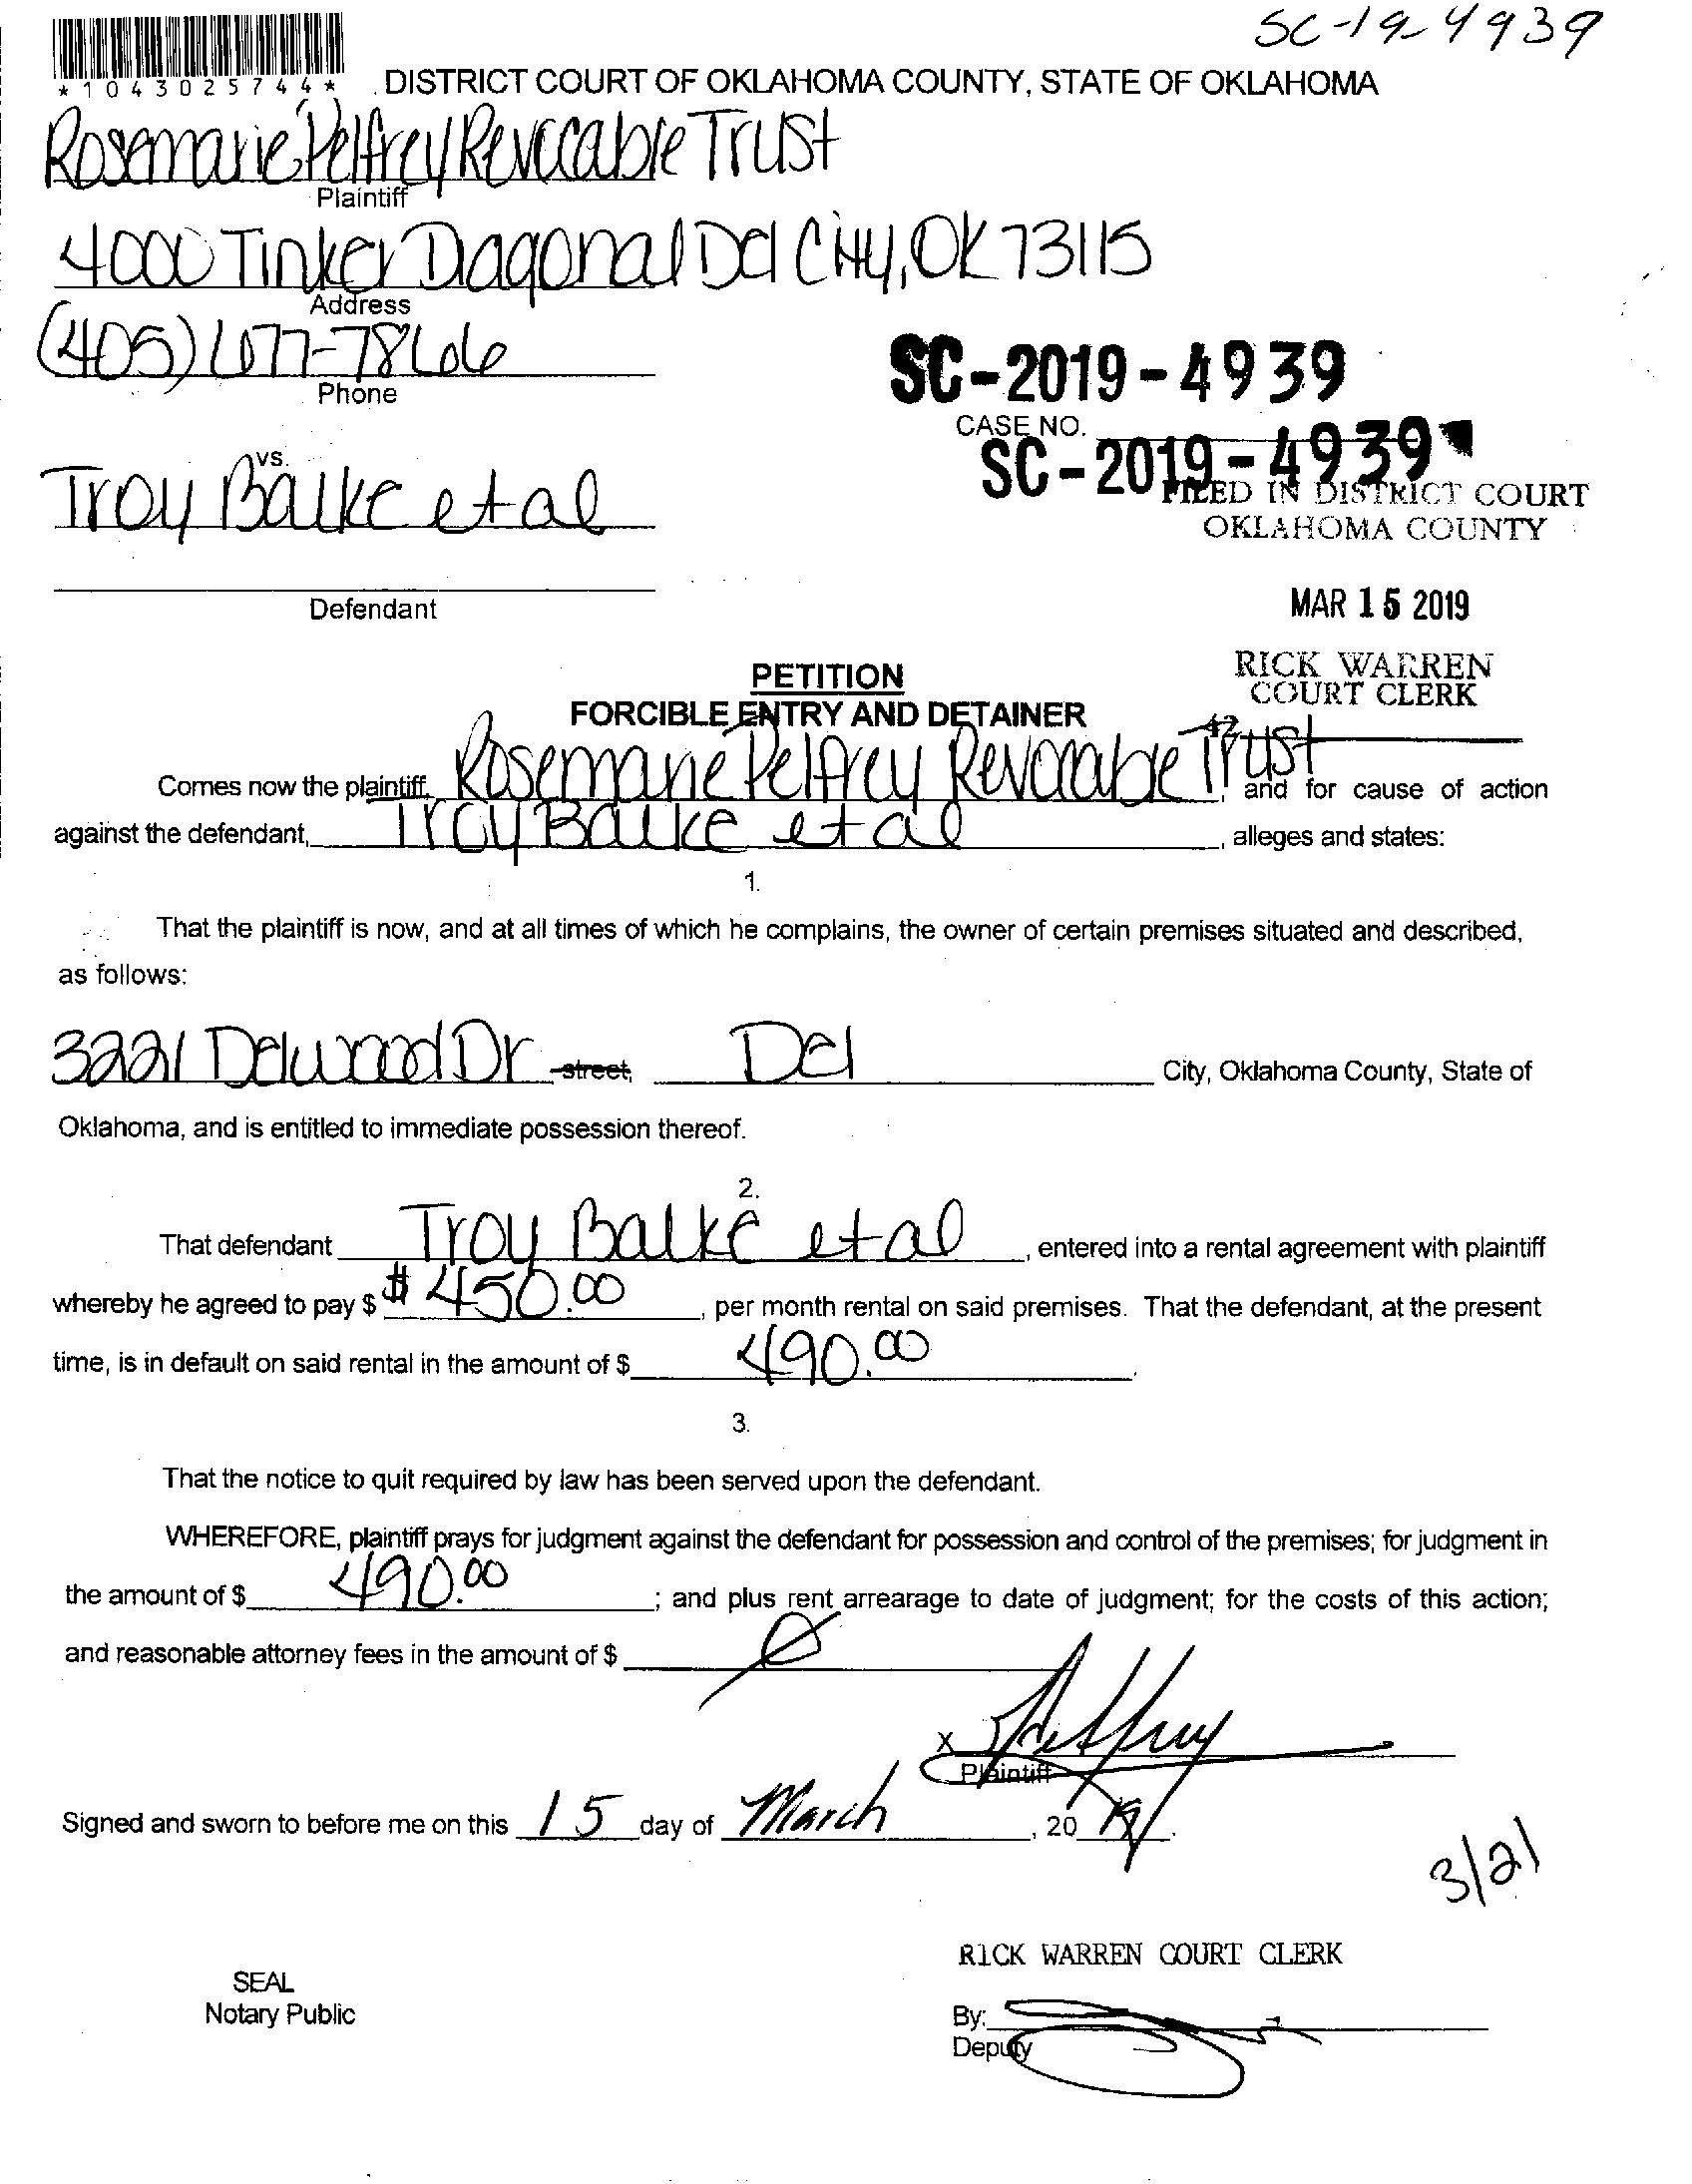 SC-19-4939
*1043025744*
DISTRICT COURT OF OKLAHOMA COUNTY, STATE OF OKLAHOMA
Rosemarie Pelfrey Revocable Trust
Plaintiff
4000 Tinker Diagonal Del City, OK 73115
Address
(405) 677-7866
Phone
SC-2019-4939
CASE NO.
SC-2019-4939
vs.
Troy Balke et al
FILED IN DISTRICT COURT
OKLAHOMA COUNTY
Defendant
MAR 15 2019
RICK WARREN
COURT CLERK
42
PETITION
FORCIBLE ENTRY AND DETAINER
Comes now the plaintiff, Rosemarie Pelfrey Revocable Trust, and for cause of action
against the defendant, Troy Balke et al, alleges and states:
1.
That the plaintiff is now, and at all times of which he complains, the owner of certain premises situated and described,
as follows:
3221 Delwood Dr street, Del City, Oklahoma County, State of
Oklahoma, and is entitled to immediate possession thereof.
2.
That defendant Troy Balke et al, entered into a rental agreement with plaintiff
whereby he agreed to pay $ $450.00, per month rental on said premises. That the defendant, at the present
time, is in default on said rental in the amount of $ 490.00.
3.
That the notice to quit required by law has been served upon the defendant.
WHEREFORE, plaintiff prays for judgment against the defendant for possession and control of the premises; for judgment in
the amount of $ 490.00; and plus rent arrearage to date of judgment; for the costs of this action;
and reasonable attorney fees in the amount of $ Ø
X Pelfrey
Plaintiff
Signed and sworn to before me on this 15 day of March, 2019.
3/21
RICK WARREN COURT CLERK
SEAL
Notary Public
By:
Deputy